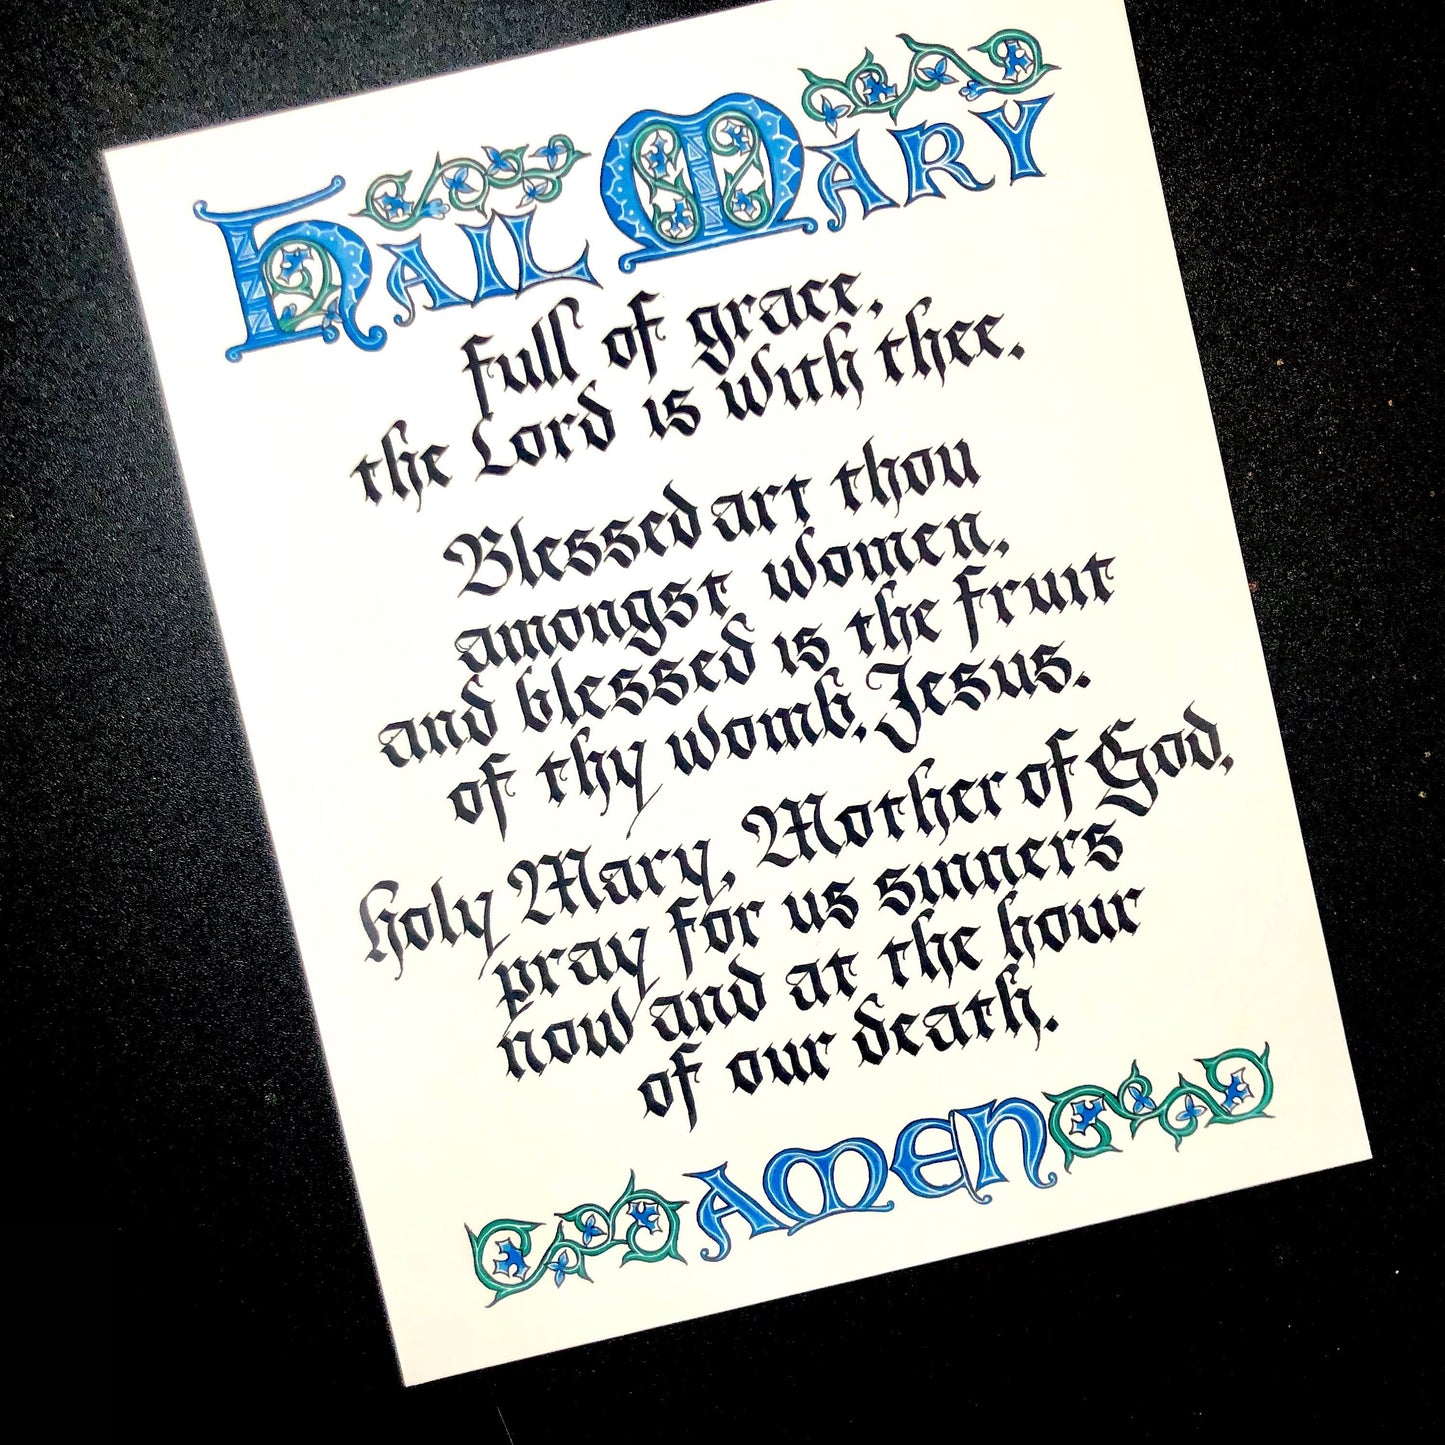 Hail Mary
full of grace,
the Lord is with thee.
Blessed art thou
amongst women,
and blessed is the fruit
of thy womb, Jesus.
holy Mary, Mother of God,
pray for us sinners
now and at the hour
of our death.
AMEN